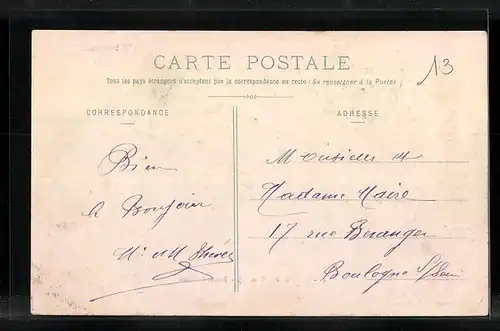 CARTE POSTALE
Tous les pays étrangers n'acceptent pas la correspondance au recto (Se renseigner à la Poste)
13
CORRESPONDANCE
Bien
le Bonjour
Mr et M
ADRESSE
Monsieur et
Madame Maire
17 rue Beranger
Boulogne S/Sein